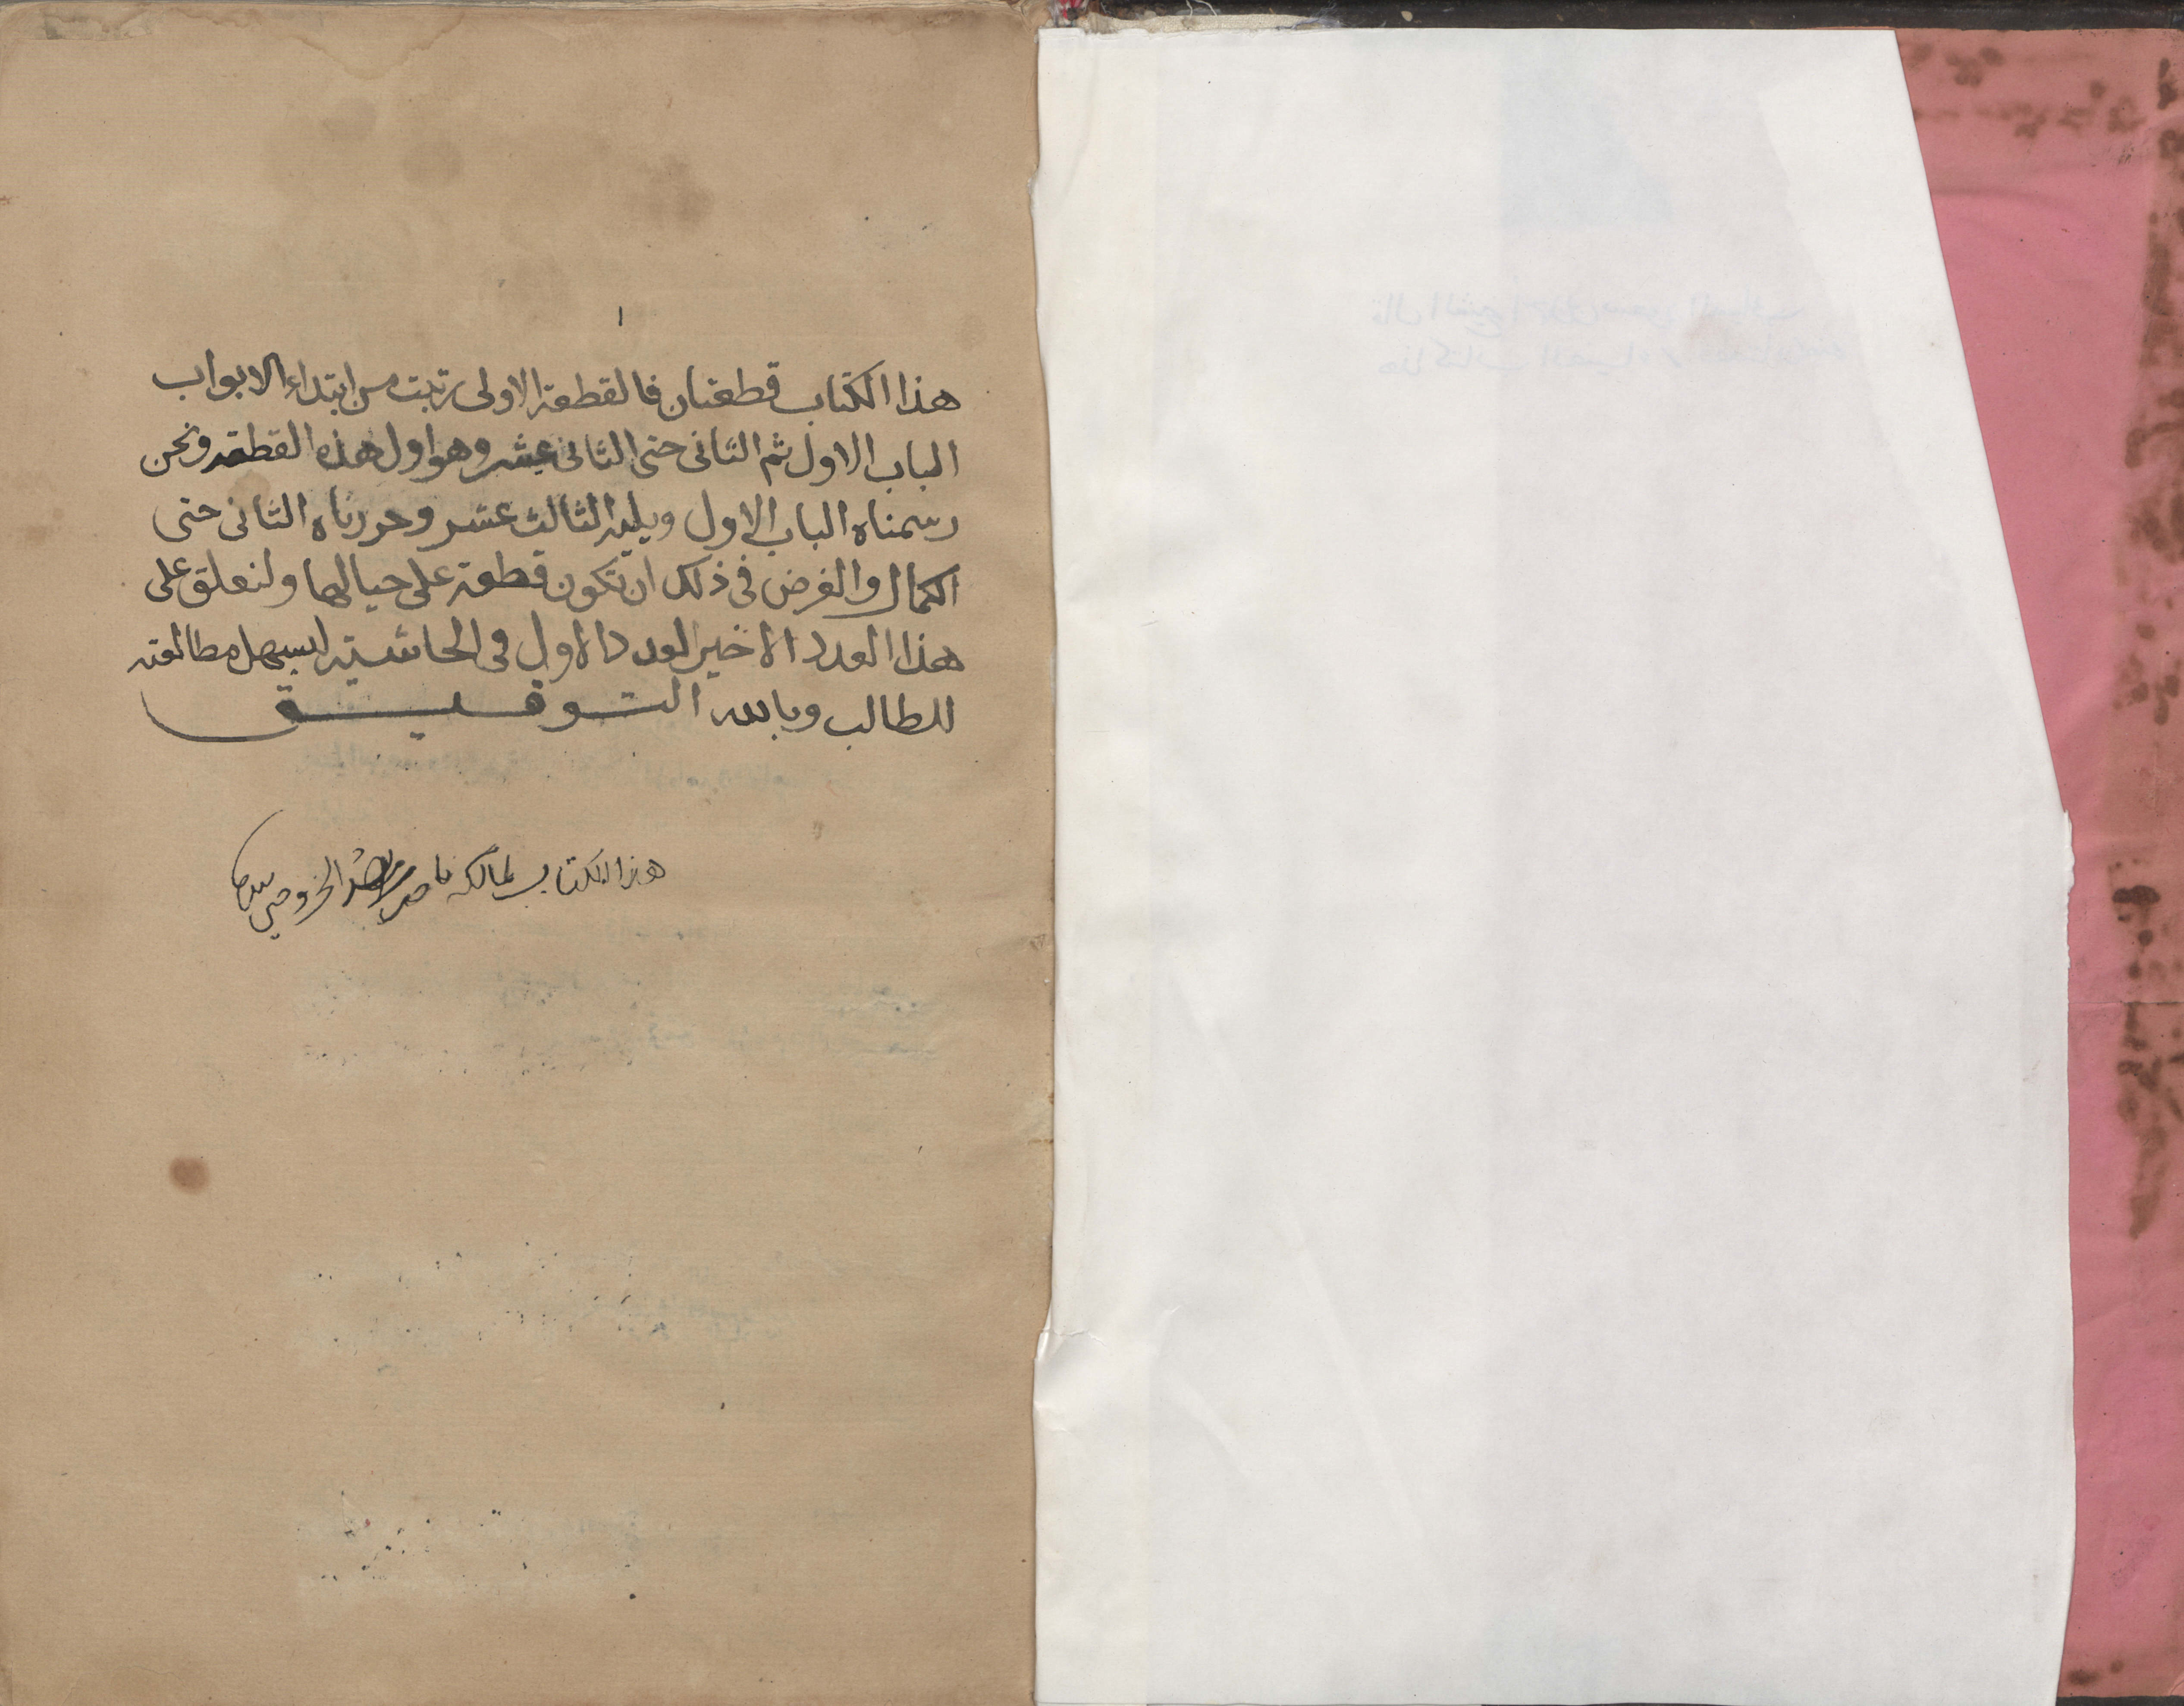 ١
هذا الكتاب قطعتان فالقطعة الاولى رتبت من ابتداء الابواب
الباب الاول ثم الثانى حتى الثانى عشر وهو اول هذه القطعة ونحن
رسمناه الباب الاول ويليه الثالث عشر وحررناه الثانى حتى
الكمال والغرض فى ذلك ان تكون قطعة على حيالها ولنعلق على
هذا العدد الاخير العدد الاول فى الحاشية ليسهل مطالعته
للطالب وبالله التوفيق
هذا الكتاب لمالكه ناصر الخروصي بيده